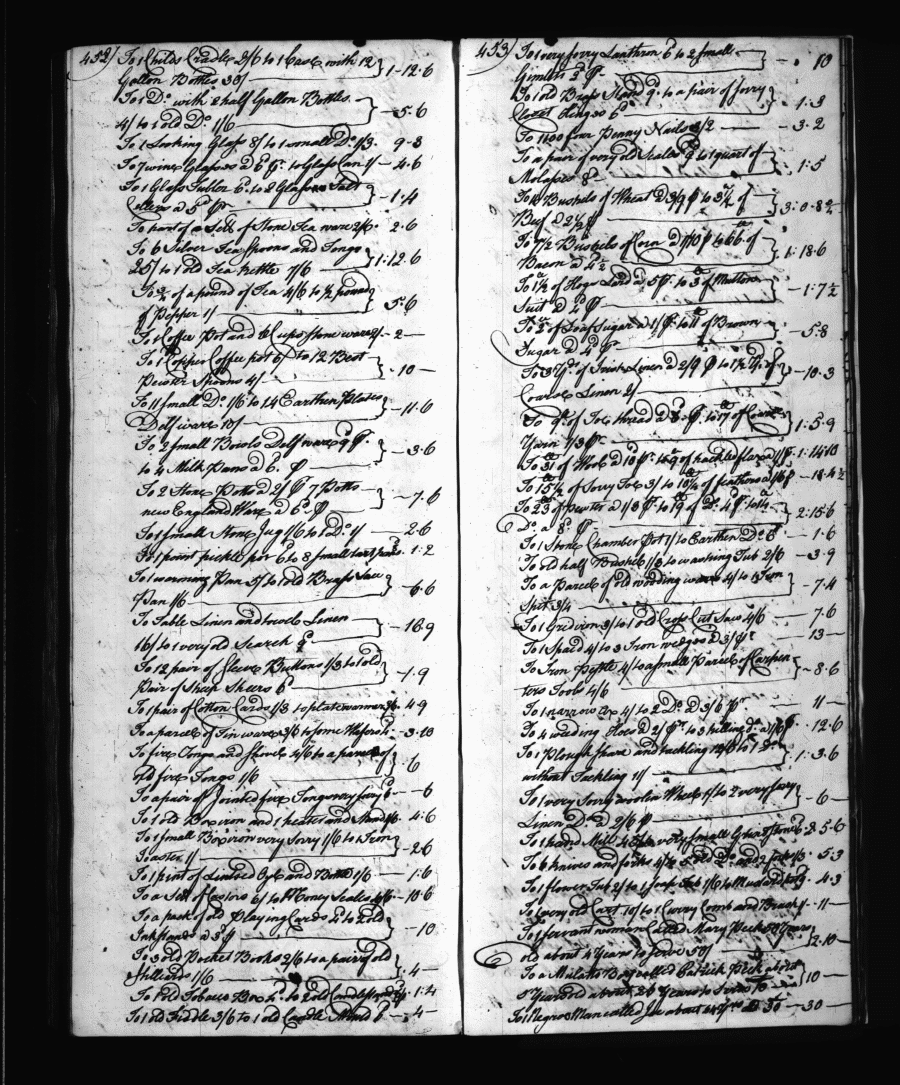 452/ To 1 Childs Cradle 2/6 to 1 Case with 12
Gallon Bottles 30/ 1-12.6
To 1 Do. with 2 half Gallon Bottles
4/ to 1 old Do. 1/6 -5.6
To 1 Looking Glass 8/ to 1 small Do. 1/3 9-3
To 7 wine Glasses a 6d p. to Glass Can 1/ -4.6
To 1 Glass Tubler 6d. to 2 Glasses Salt
Cellers a 5d pr -1.4
To part of a Sett of Stone Tea ware 2/6. 2.6
To 6 Silver Tea Spoons and Tongs
25/ to 1 old Tea kettle 7/6 1:12.6
To 3/4 of a pound of Tea 4/6 to 1/2 pound
of Pepper 1/ 5.6
To 1 Coffee Pot and 6 Cups Stone ware 2/ -2-
To 1 Copper Coffee pot 6/ to 12 Best
Pewter Spoons 4/ -10-
To 11 small Do. 1/6 to 14 Earthen Plates
Delf ware 10/ -11.6
To 2 small Bowls Delf ware 9d p.
to 4 Milk Pans a 6. p -3.6
To 2 Stone Potts a 2/ p 7 Potts
new England Ware a 6d p -7.6
To 1 small Stone Jug 1/6 to 1 Do. 1/ -2.6
To 1 point pickle pot 6d to 8 small tart pans 1.2
To 1 warming Pan 5/ to 1 old Brass Sauce
Pan 1/6 -6.6
To Table Linen and towels Linen
16/ to 1 very old Search 9d -16.9
To 12 pair of Sleeve Buttons 1/3 to 1 old
Pair of Sheep Sheers 6d -1.9
To 1 pair of Cotton Cards 1/3 to plate warmer 3/6 4.9
To a parcel of Tin ware 3/6 to some -3.10
To fire Tongs and Shovel 4/6 to a parcel of
old fire Tongs 1/6 6
To a pair of Jointed fire Tongs very sorry 6d -6
To 1 old Box iron and 1 heater and Stand 4/6 4.6
To 1 small Box iron very sorry 1/6 to Iron
Toaster 1/ -2.6
To 1 pint of Linseed Oyl and Bottle 1/6 -1.6
To a Sett of Castors 6/ to Money Scales 4/6 -10.6
To a pack of old Playing Cards 4d to 2 old
Inkstands a 3d p -10
To 3 old Pocket Books 2/6 to a pair of old
Stilliards 1/6 -4-
To 1 old Tobacco Box 4d. to 2 old Candlesticks 1.4
To 1 old Fiddle 3/6 to 1 old Candle Stand 6 -4-
453/ To 1 very sorry Lanthron 6 to 2 small
Gimlets 2d p. -. 10
To 1 old Brass Stand 9d. to a pair of sorry
Closet Hinges 6d 1.3
To 1100 four Penny Nails 3/2 -3.2
To a pair of very old Scales 9d to 1 quart of
Molasses 8d 1.5
To Bushels of Wheat a 3/9 p to of
Beef a 2 1/2 p 3:0.8 1/2
To 7 1/2 Bushels of Corn a p to 66 of
Bacon a 4 1/2 1.18.6
To 1 1/2 of Hogs Lard a 5d p to 3 of Mutton
Suit a 4 p -1.7 1/2
To 2 of Loaf Sugar a 1/ p to 11 of Brown
Sugar a 4 p 5.8
To 3 yds. of Irish Linen a 2/9 p to 1 1/2 yd. of
Coarse Linen 2/ -10.3
To of Toe thread a 8. p. to 17 of Coarse
Yarn 1/3 p 1:5.9
To 31 of Wool a 10d p. to 9 of hackled flax a 1/ p. 1:14.10
To 15 1/2 of Sorry Toe 3/ to 10 1/4 of feathers a 1/6 p -18.4 1/2
To 23 of Pewter a 1/3 p. to 19 of Do. p. to 14
Do. a 8d. p 2:15.6
To 1 Stone Chamber Pot 1/ to Earthen Do. 6d -1.6
To old half Bushel 1/3 to washing Tub 2/6 -3.9
To a Parcel of old wooding ware 4/ to 1 Iron
Spit 3/4 -7.4
To 1 Gridiron 3/ to 1 old Cross Cut Saw 4/6 7.6
To 1 Spaid 4/ to 3 Iron wedges a 3/ pr -13-
To Iron Pestle 4/ to a small Parcel of Carpen
ters Tools 4/6 -8.6
To 1 narrow ax 4/ to 2 Do. a 3/6 pr 11-
To 4 weeding Hoes a 2/ p. to 3 hilling do. a 1/6 p 12.6
To 1 Plough share and tackling to 1 Do.
without Tackling 11/ 1:3.6
To 1 very sorry woolin Wheel 1/ to 2 very sorry
Linen Do. a 2/6 p -6-
To 1 hand Mill to very small Grind stone 2.5.6
To 6 knives and forks 4/ 5.3
To 1 flower Tub 2/ to 1 soap Tub 1/6 to Mustard 4.3
To 1 very old Cart 10/ to 1 Curry Comb and Brush 1/ -11-
To 1 servant woman called Mary Peck 50 years
old about 4 Years to serve 50/ 2.10-
To a Mulatto Boy called Patrick Peck about
5 Years old about 26 Years to serve 10 10-
To 1 Negroe Man called Joe about years a 30 -30-